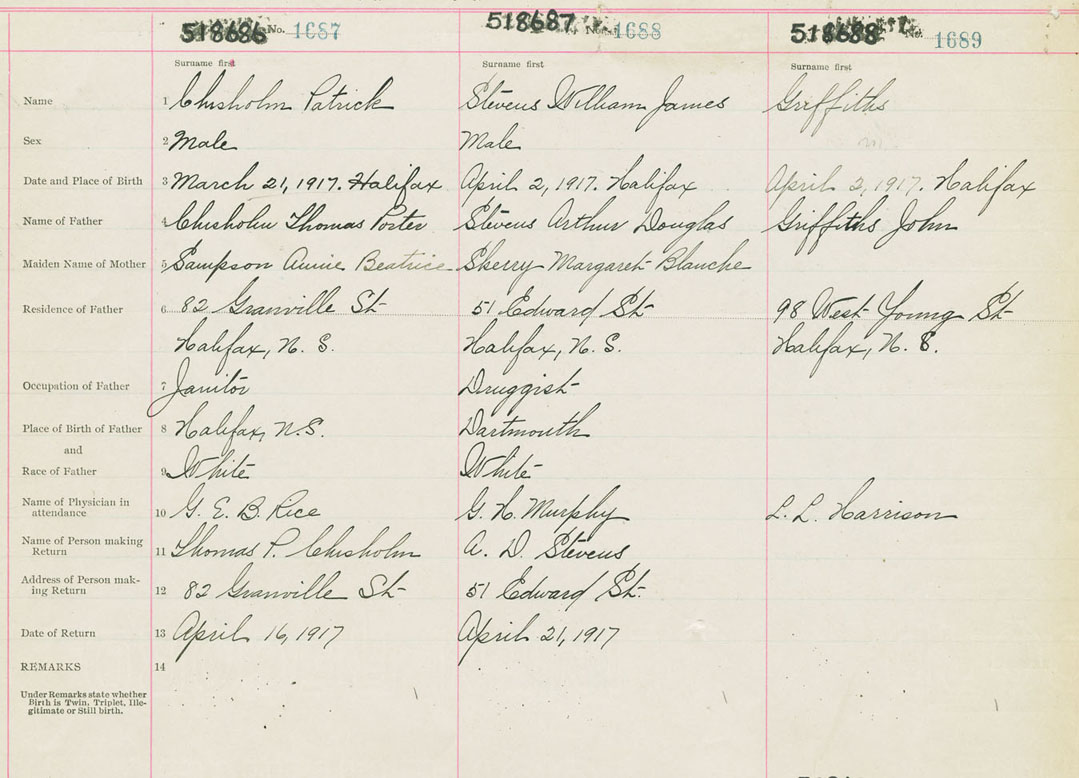 518686 No. 1687 518687 No. 1688 518688 No. 1689
Surname first Surname first Surname first
Name 1 Chisholm Patrick Stevens William James Griffiths
Sex 2 Male Male
Date and Place of Birth 3 March 21, 1917. Halifax April 2, 1917. Halifax April 2, 1917. Halifax
Name of Father 4 Chisholm Thomas Porter Stevens Arthur Douglas Griffiths John
Maiden Name of Mother 5 Sampson Annie Beatrice Skerry Margaret Blanche
Residence of Father 6 82 Granville St 51 Edward St 98 West Young St
Halifax, N. S. Halifax, N. S. Halifax, N. S.
Occupation of Father 7 Janitor Druggist
Place of Birth of Father 8 Halifax, N.S. Dartmouth
and
Race of Father 9 White White
Name of Physician in
attendance 10 G. E. B. Rice G. H. Murphy L. L. Harrison
Name of Person making
Return 11 Thomas P. Chisholm A. D. Stevens
Address of Person mak-
ing Return 12 82 Granville St 51 Edward St.
Date of Return 13 April 16, 1917 April 21, 1917
REMARKS 14
Under Remarks state whether
Birth is Twin, Triplet, Ille-
gitimate or Still birth.